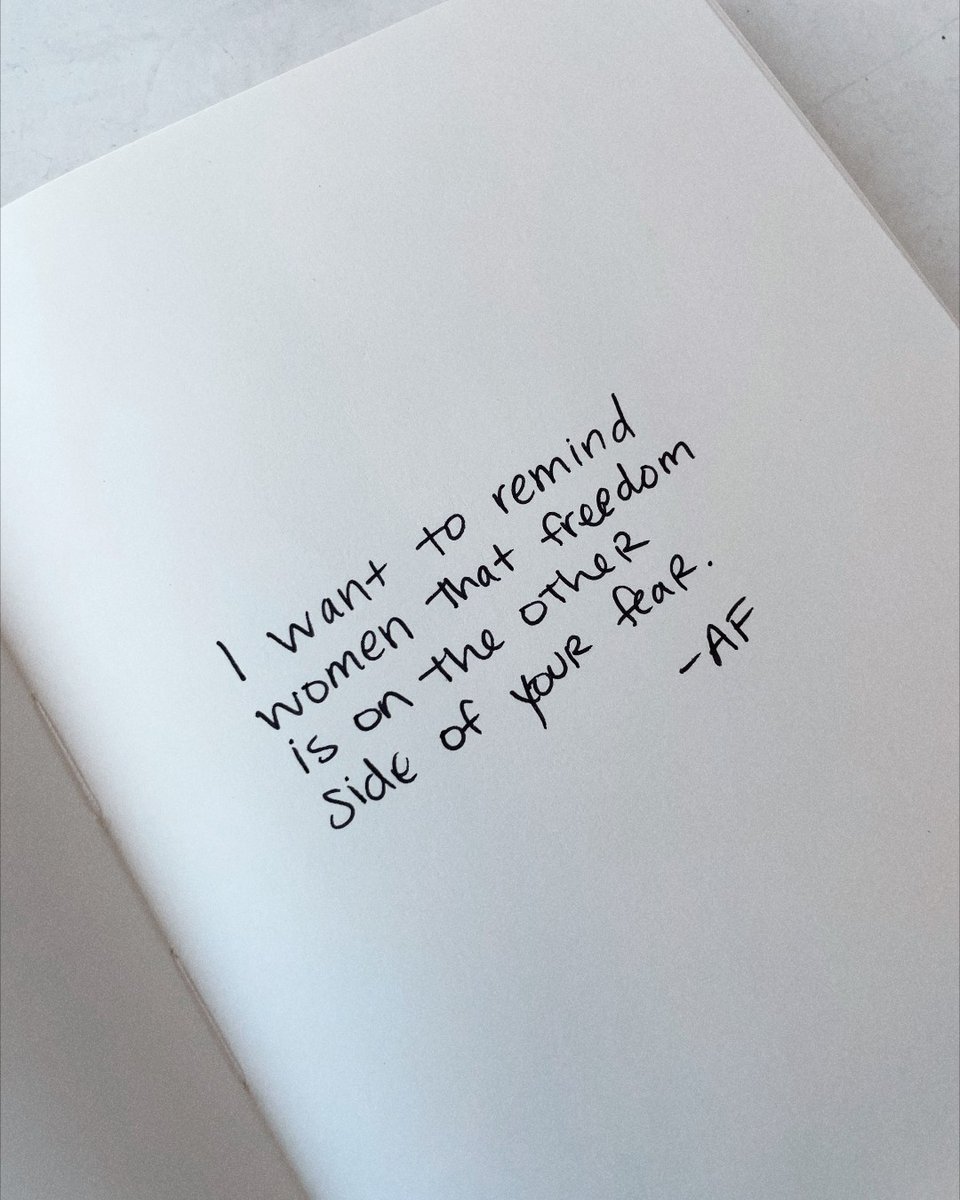 I want to remind
women that freedom
is on the other
side of your fear.
-AF